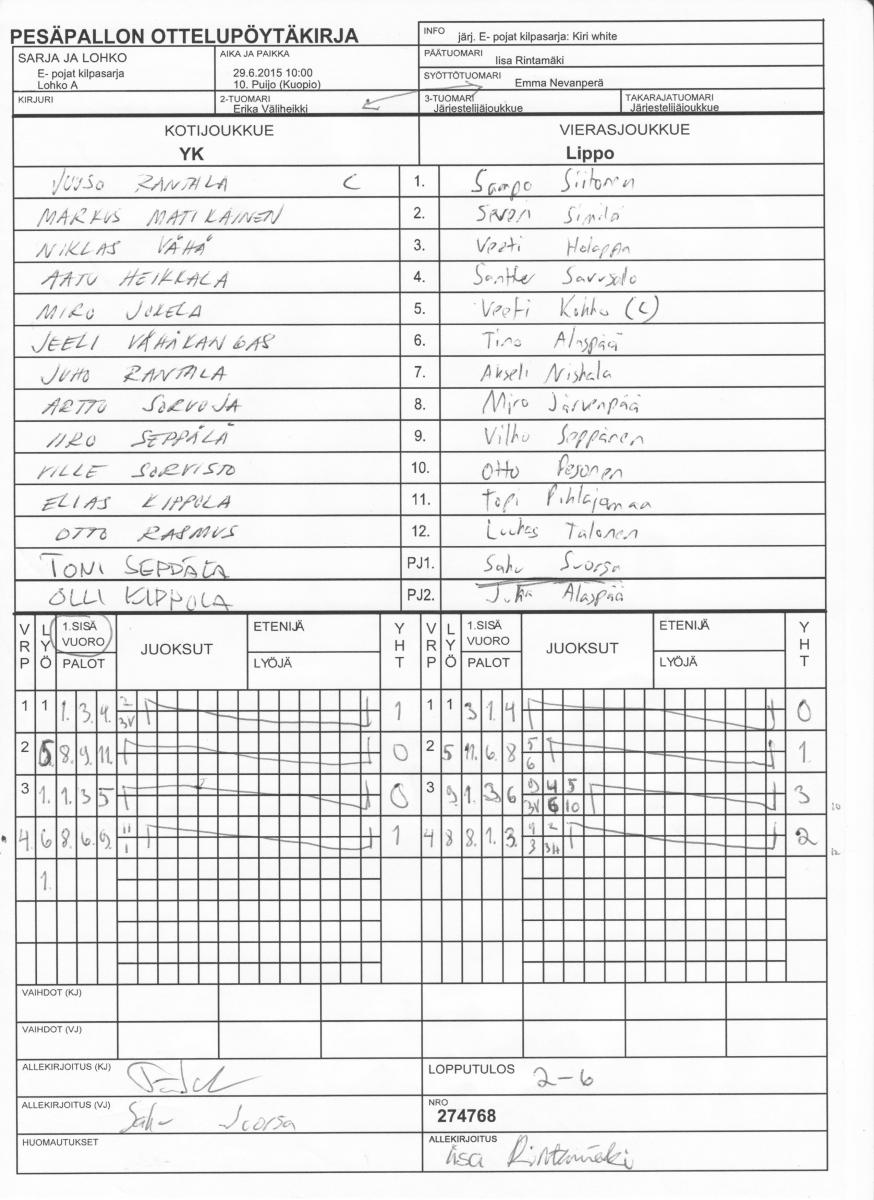 PESÄPALLON OTTELUPÖYTÄKIRJA
INFO järj. E- pojat kilpasarja: Kiri white
SARJA JA LOHKO
E- pojat kilpasarja
Lohko A
AIKA JA PAIKKA
29.6.2015 10:00
10. Puijo (Kuopio)
PÄÄTUOMARI Iisa Rintamäki
SYÖTTÖTUOMARI Emma Nevanperä
KIRJURI
2-TUOMARI
Erika Väliheikki
3-TUOMARI
Järjestelijäjoukkue
TAKARAJATUOMARI
Järjestelijäjoukkue
KOTIJOUKKUE
YK
VIERASJOUKKUE
Lippo
JUUSO RANTALA C 1. Sampo Siitonen
MARKUS MATIKAINEN 2. Severi Similä
NIKLAS VÄHÄ 3. Veeti Holappa
AATU HEIKKALA 4. Santtu Savusalo
MIRO JOKELA 5. Veeti Kohho (C)
JEELI VÄHÄKANGAS 6. Timo Alaspää
JUHO RANTALA 7. Akseli Niskala
ARTTO SORVOJA 8. Miro Järvenpää
IIRO SEPPÄLÄ 9. Vilho Seppänen
VILLE SORVISTO 10. Otto Pesonen
ELIAS KIPPOLA 11. Topi Pihlajamaa
OTTO RASMUS 12. Luukas Talonen
TONI SEPPÄLÄ PJ1. Saku Suorsa
OLLI KIPPOLA PJ2. Juka Alaspää
VRP LYÖ 1.SISÄ VUORO PALOT JUOKSUT ETENIJÄ LYÖJÄ YHT VRP LYÖ 1.SISÄ VUORO PALOT JUOKSUT ETENIJÄ LYÖJÄ YHT
1 1 1. 3. 4. 2 3V 1 1 1 3 1. 4 0
2 5 8. 9. 11. 0 2 5 11. 6. 8 5 6 1.
3 1. 1 3 5 0 3 9 1. 3 6 9 4 5 3V 6 10 3
4. 6 8. 6. 9. 11 1 1 4 8 8. 1. 3. 9 2 3 3H 2
1.
10
12
VAIHDOT (KJ)
VAIHDOT (VJ)
ALLEKIRJOITUS (KJ)
LOPPUTULOS 2-6
ALLEKIRJOITUS (VJ) Saku Suorsa
NRO
274768
HUOMAUTUKSET
ALLEKIRJOITUS
Iisa Rintamäki